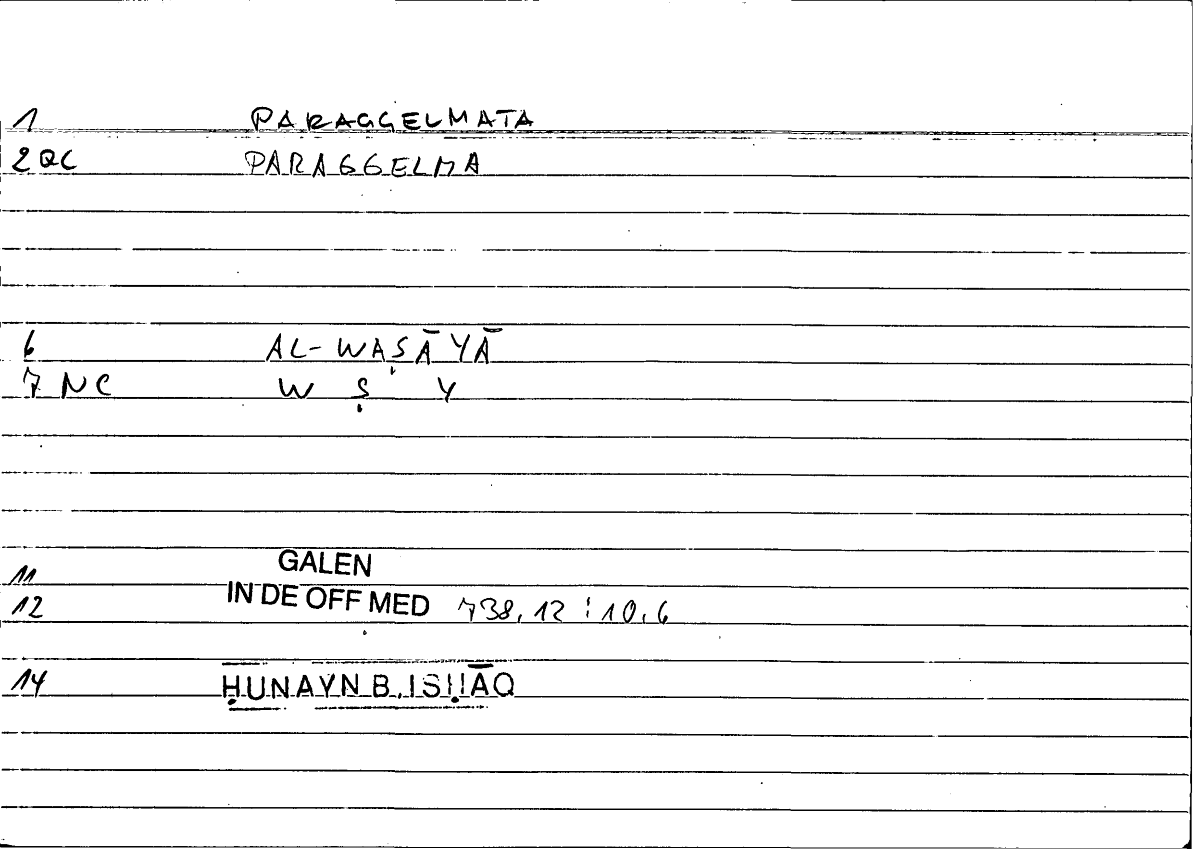 1 PARAGGELMATA
2 QC PARAGGELMA
6 AL-WAṢĀYĀ
7 NC W Ṣ Y
11 GALEN
12 IN DE OFF MED 738,12 : 10,6
14 ḤUNAYN B. ISḤĀQ